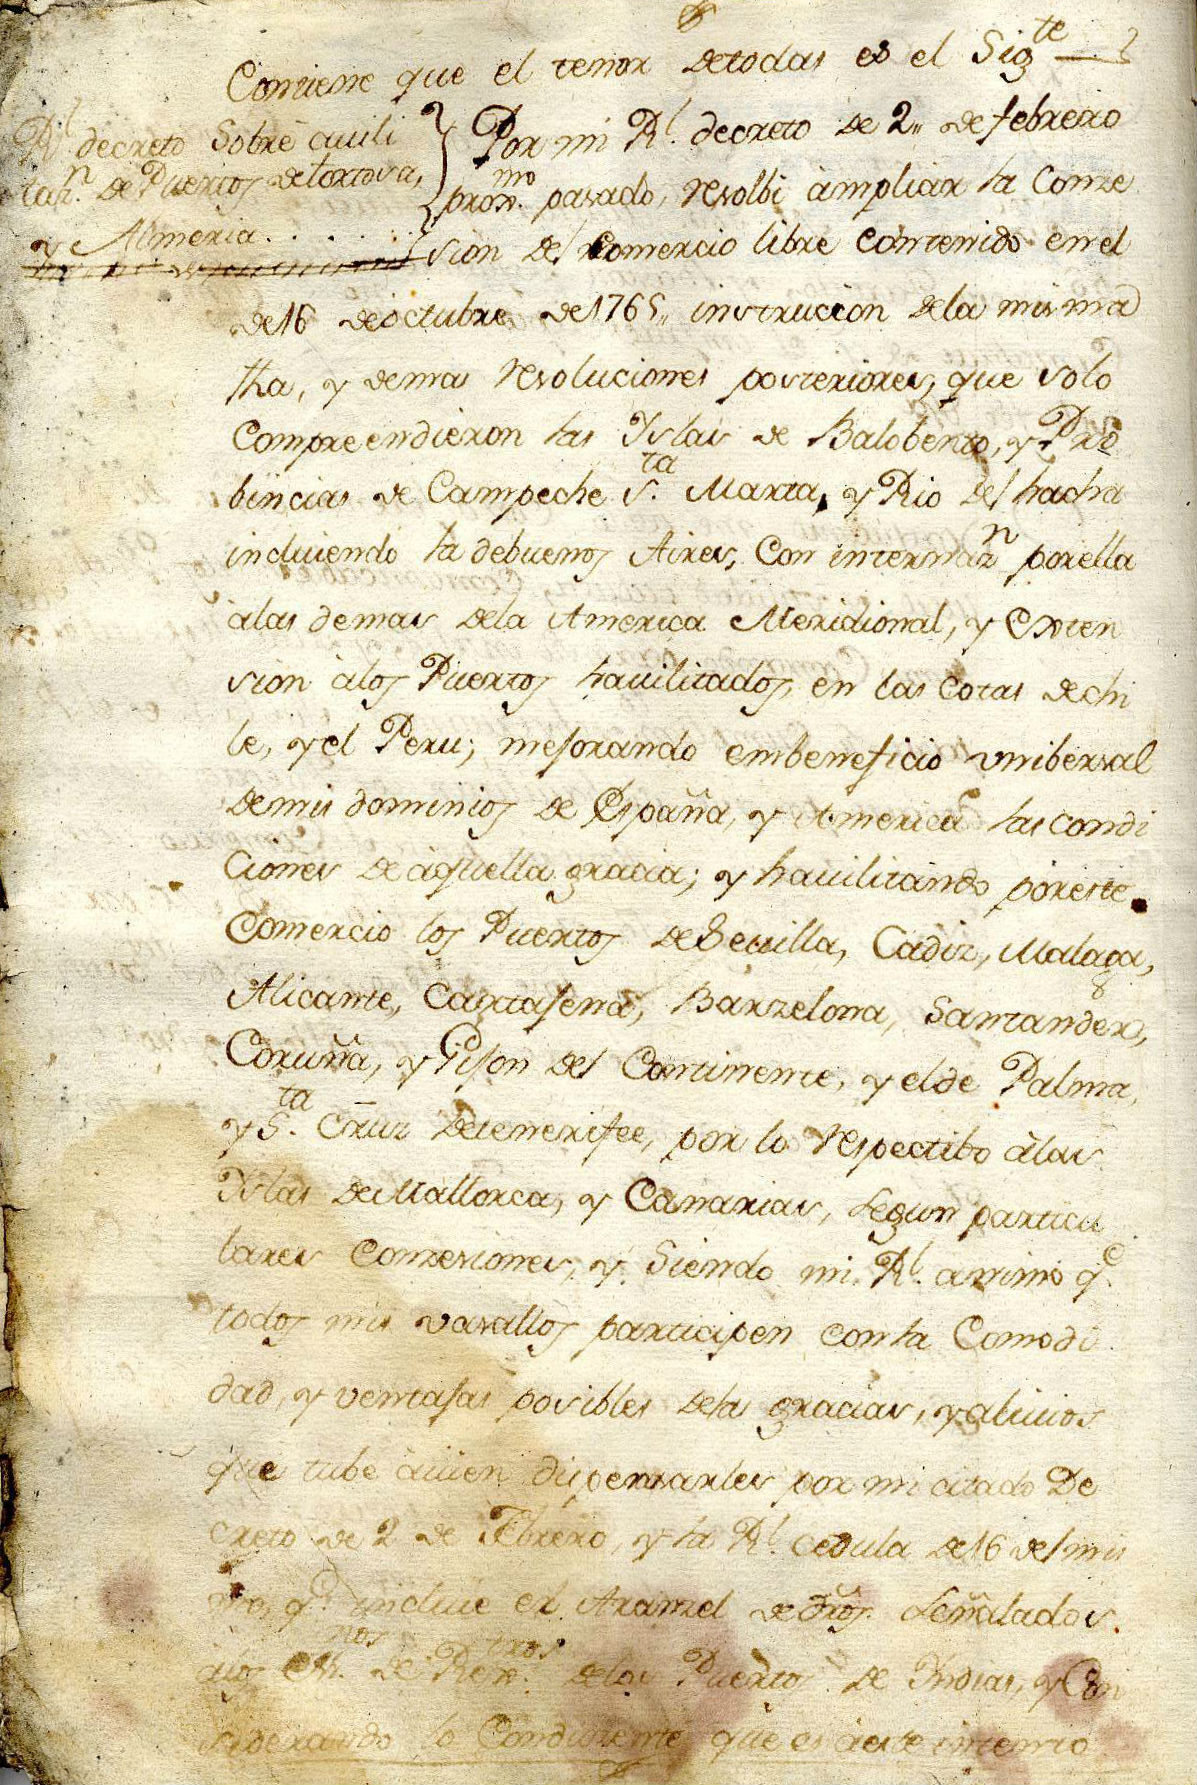 Contiene que el tenor de todas es el Sigte
Rl decreto Sobre auili
tazn. de Puertos de tortova,
y Almeria
Por mi Rl. decreto de 2,, de febrero
proxmo. pasado, resolbi àmpliar la Conze
sion del Comercio libre contenido en el
de 16 de octubre de 1765,, instruccion dela misma
fha, y demas resoluciones posteriores, que solo
Compreendieron las Yslas de Balobento, y Pro
bincias de Campeche Sta. Marta, y Rio del hacha
incluiendo la debuenos Aires, Con internazn porella
àlas demas dela America Meridional, y Exten
sion àlos Puertos havilitados, en las Cotas de chi
le, y el Peru; mejorando embeneficio unibersal
demis dominios de España, y America las condi
ciones de àquella gracia; y havilitando poreste
Comercio los Puertos de Sevilla, Cadiz, Malaga,
Alicante, Cartajena, Barzelona, Santander,
Coruña, y Gijon del Continente, y el de Palma,
y Sta. Cruz detenerifee, por lo respectibo àlas
Yslas de Mallorca, y Canarias, Segun particu
lares Conzesiones, y Siendo mi Rl. animo qe.
todos mis vasallos participen con la Comodi
dad, y ventajas posibles delas gracias, y alivios
que tube àvien dispensarles por mi citado De
creto de 2 de Febrero, y la Rl. cedula de 16 del mis
mo, qe. incluie el Aranzel de Dros. Señalados
àlos de los Puertos de Yndias, y Con
siderando lo Conduzente que es àeste intento